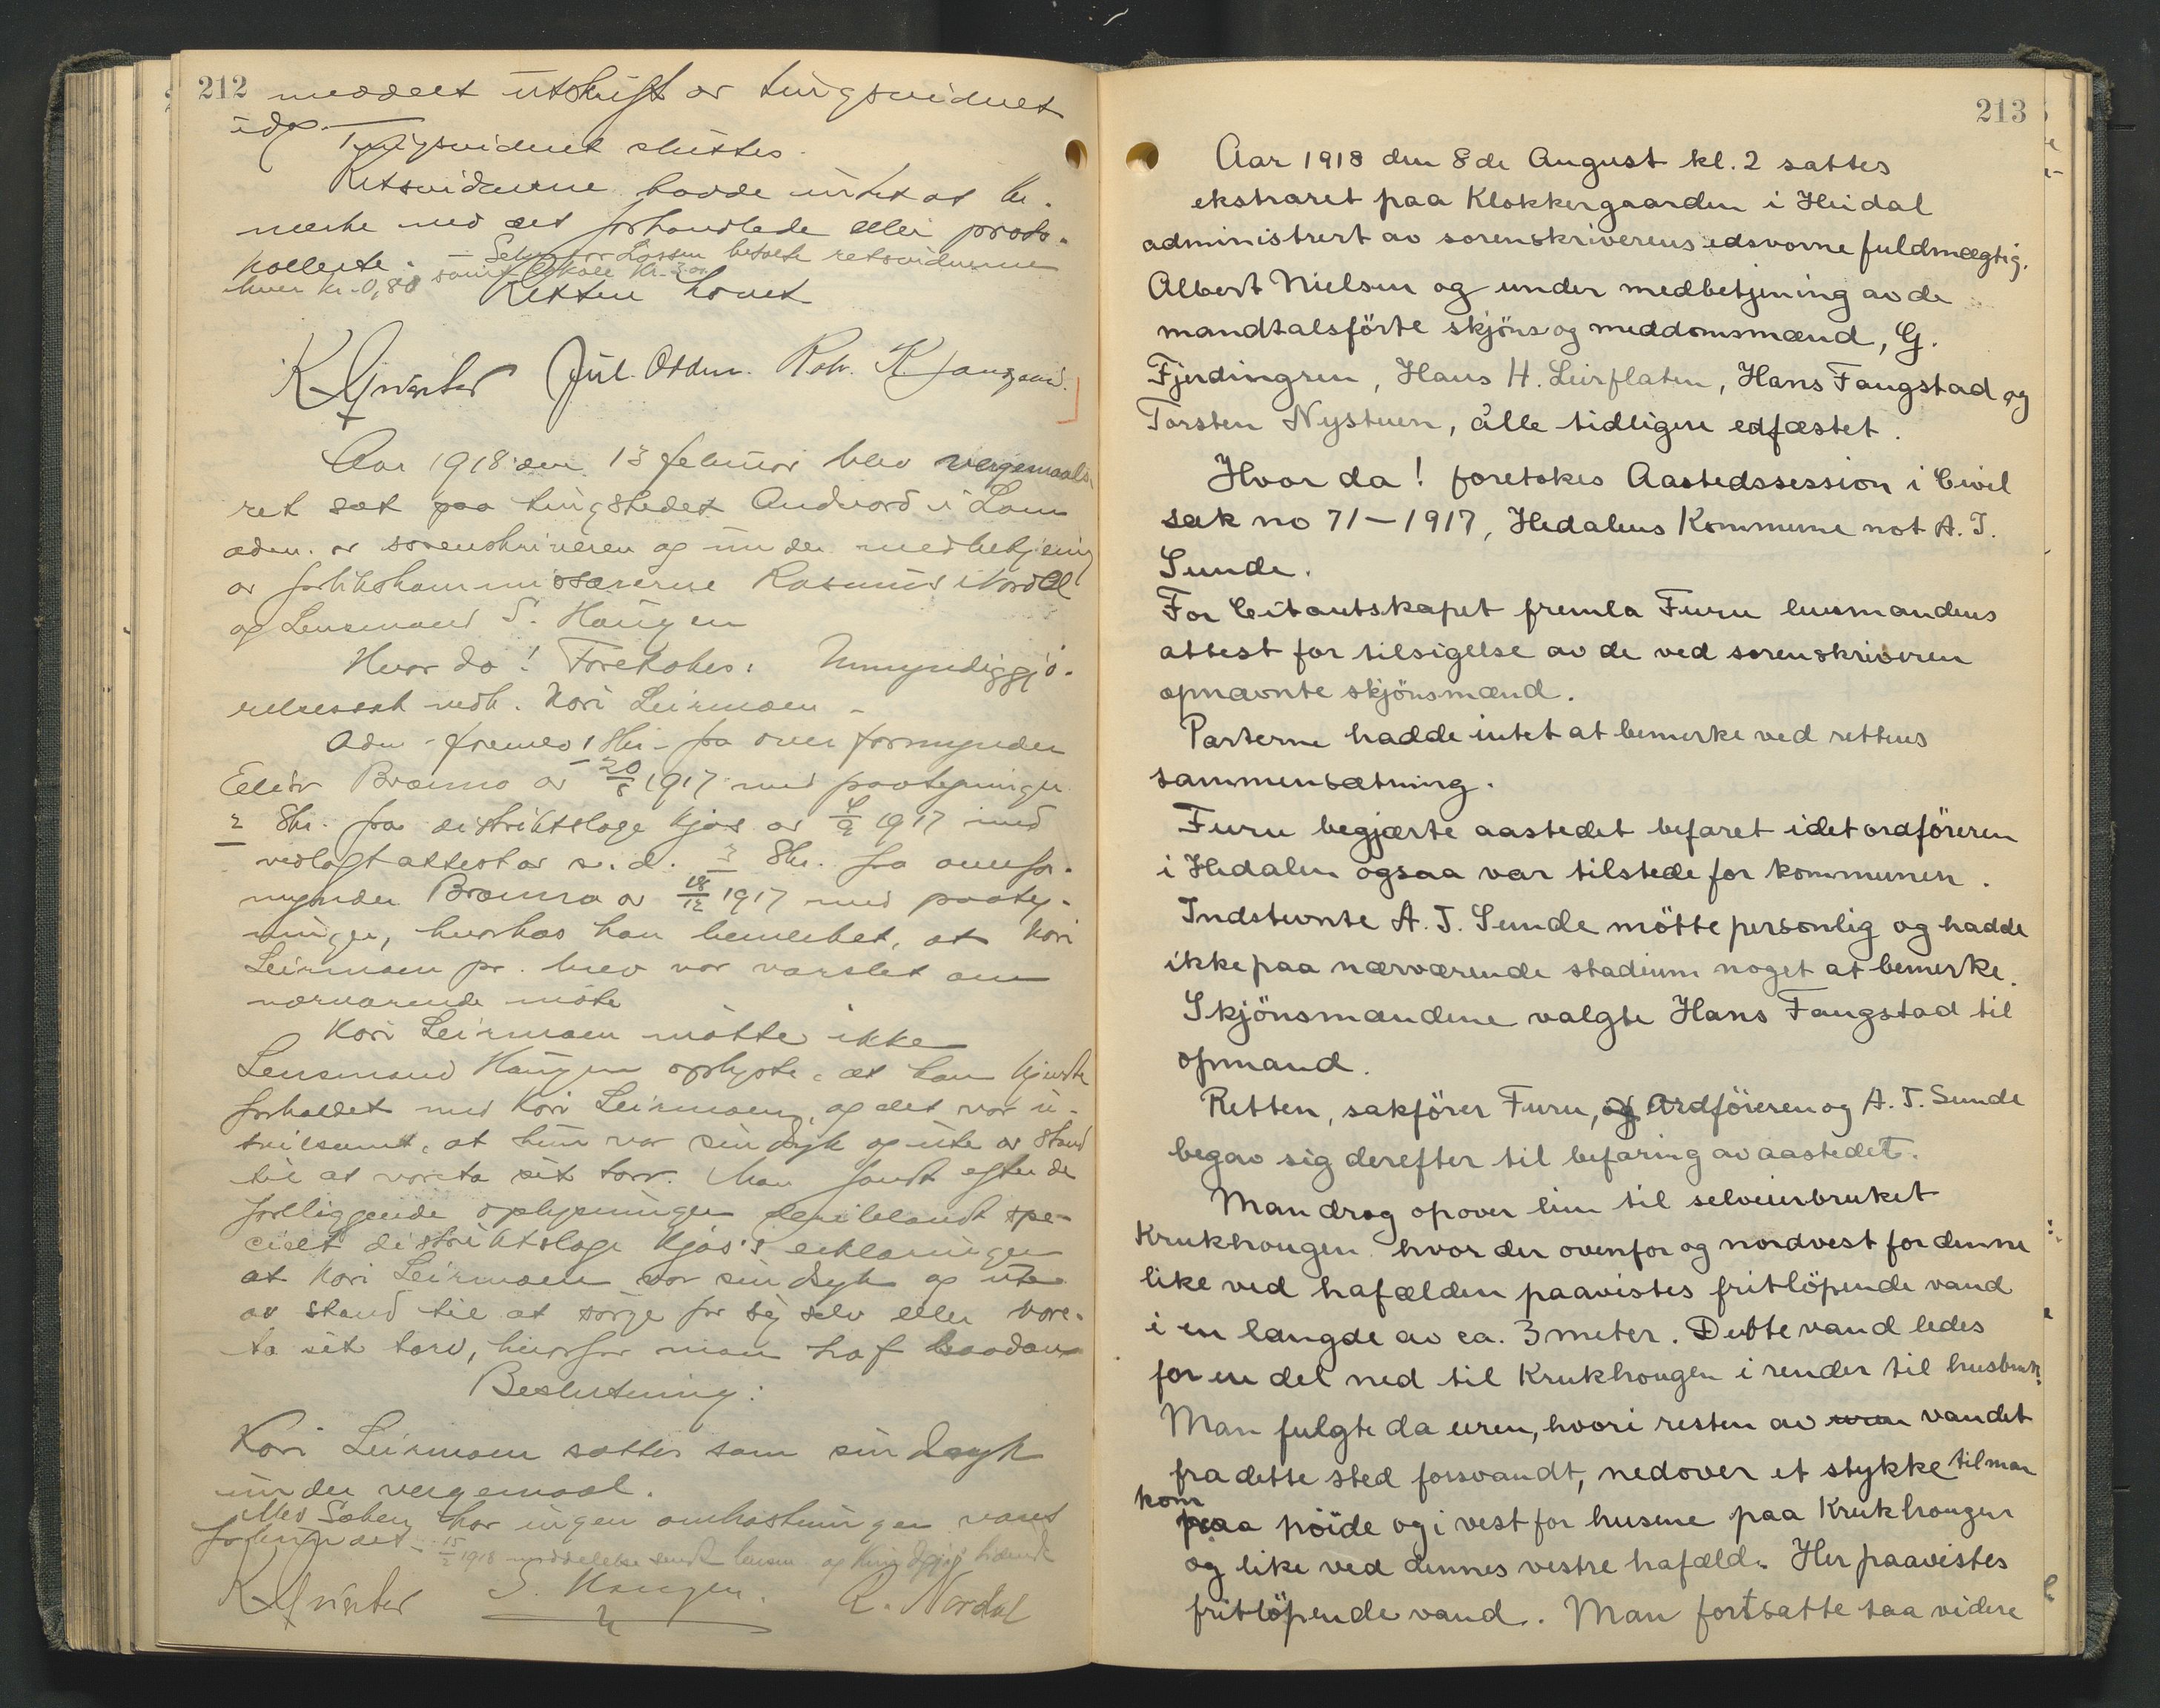 212 meddelt utskrift av tingsvidnet
utg.
Tingsvidnet sluttes.
Retsvidnerne havde intet at be-
merke med det forhandlede eller proto-
kollerte. – Sakfører Lassen betalte retsvidnerne
hver kr. 0,80 samt lokale kr. 3.00
Retten hævet
K Qvinter Jul. Odden. Rolv. K.
Aar 1918 den 13 februar blev vergemaals-
ret sat paa tingstedet Andvord i Lom
adm. av sorenskriveren og under medbetjening
av forlikskommissærerne Rasmus Nordal
og Lensmand S. Haugen
Hvor da! Foretokes: Umyndiggjö-
relsessak vedk. Kari Leirmoen –
Adm. fremla 1 Skr. fra overformynder
Eilev Bræmo av 20/8 1917 med paategninger
2 Skr. fra distriktslæge Kjøs av 4/9 1917 med
vedlagt attest av s. d. 3 Skr. fra overfor-
mynder Bræmo av 18/12 1917 med paateg-
ninger, hvorhos han bemerket, at Kari
Leirmoen pr. brev var varslet om
nærværende møte
Kari Leirmoen møtte ikke
Lensmand Haugen oplyste, at han kjendte
forholdet med Kari Leirmoen, og det var u-
tvilsomt, at hun var sindsyk og ute av stand
til at vareta sit tarv. Man fandt efter de
foreliggende oplysninger deriblandt spe-
cielt distriktslæge Kjøs's erklæringer
at Kari Leirmoen var sindsyk og ute
av stand til at sørge for sig selv eller vare-
ta sit tarv, hvorfor man traf saadan
Beslutning:
Kari Leirmoen sættes som sindssyk
under vergemaal.
Med Saken har ingen omkostninger været
forbundet – 15/2 1918 meddelelse sendt lensm. og
K Qvinter S. Haugen. R. Nordal
213
Aar 1918 den 8de August kl. 2 sattes
ekstraret paa Klokkergaarden i Heidal
administrert av sorenskriverens edsvorne fuldmægtig,
Albert Nielsen og under medbetjening av de
mandtalsförte skjöns og meddomsmænd, G.
Fjerdingren, Hans H. Leirflaten, Hans Faugstad og
Torsten Nystuen, alle tidligere edfæstet.
Hvor da! foretokes Aastedssession i Civil
sak no 71–1917, Hedalens Kommune mot A. T.
Sunde.
For Citantskapet fremla Furu lensmandens
attest for tilsigelse av de ved sorenskriveren
opnævnte skjönsmænd.
Parterne hadde intet at bemerke ved rettens
sammensætning.
Furu begjærte aastedet befaret idet ordföreren
i Hedalen ogsaa var tilstede for kommunen.
Indstevnte A. T. Sunde mötte personlig og hadde
ikke paa nærværende stadium noget at bemerke.
Skjönsmændene valgte Hans Faugstad til
opmand.
Retten, sakförer Furu, og Ordföreren og A. T. Sunde
begav sig derefter til befaring av aastedet.
Man drog opover lien til selveierbruket
Krukhougen hvor der ovenfor og nordvest for denne
like ved hafælden paavistes fritlöpende vand
i en længde av ca. 3 meter. Dette vand ledes
for en del ned til Krukhougen i render til husbruk.
Man fulgte da uren, hvori resten av uren vandet
fra dette sted forsvandt, nedover et stykke til man
kom
paa höide og i vest for husene paa Krukhougen
og like ved dennes vestre hafæld. Her paavistes
fritlöpende vand. Man fortsatte saa videre